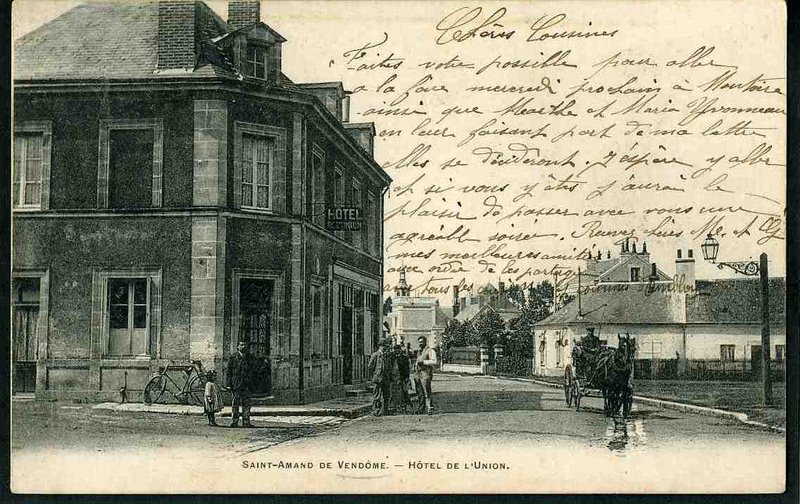 Chères Cousines
Faites votre possible pour aller
a la foire mercredi prochain à Montoire
ainsi que Marthe et Maria Yvonneau
en leur faisant part de ma lettre
elles se décideront. J'espère y aller
et si vous y êtes j'aurai le
plaisir de passer avec vous une
agréable soirée. Recevez chers Me. et
mes meilleures amitiés
aux ordre de les partager
HÔTEL
SAINT-AMAND DE VENDÔME. — HÔTEL DE L'UNION.